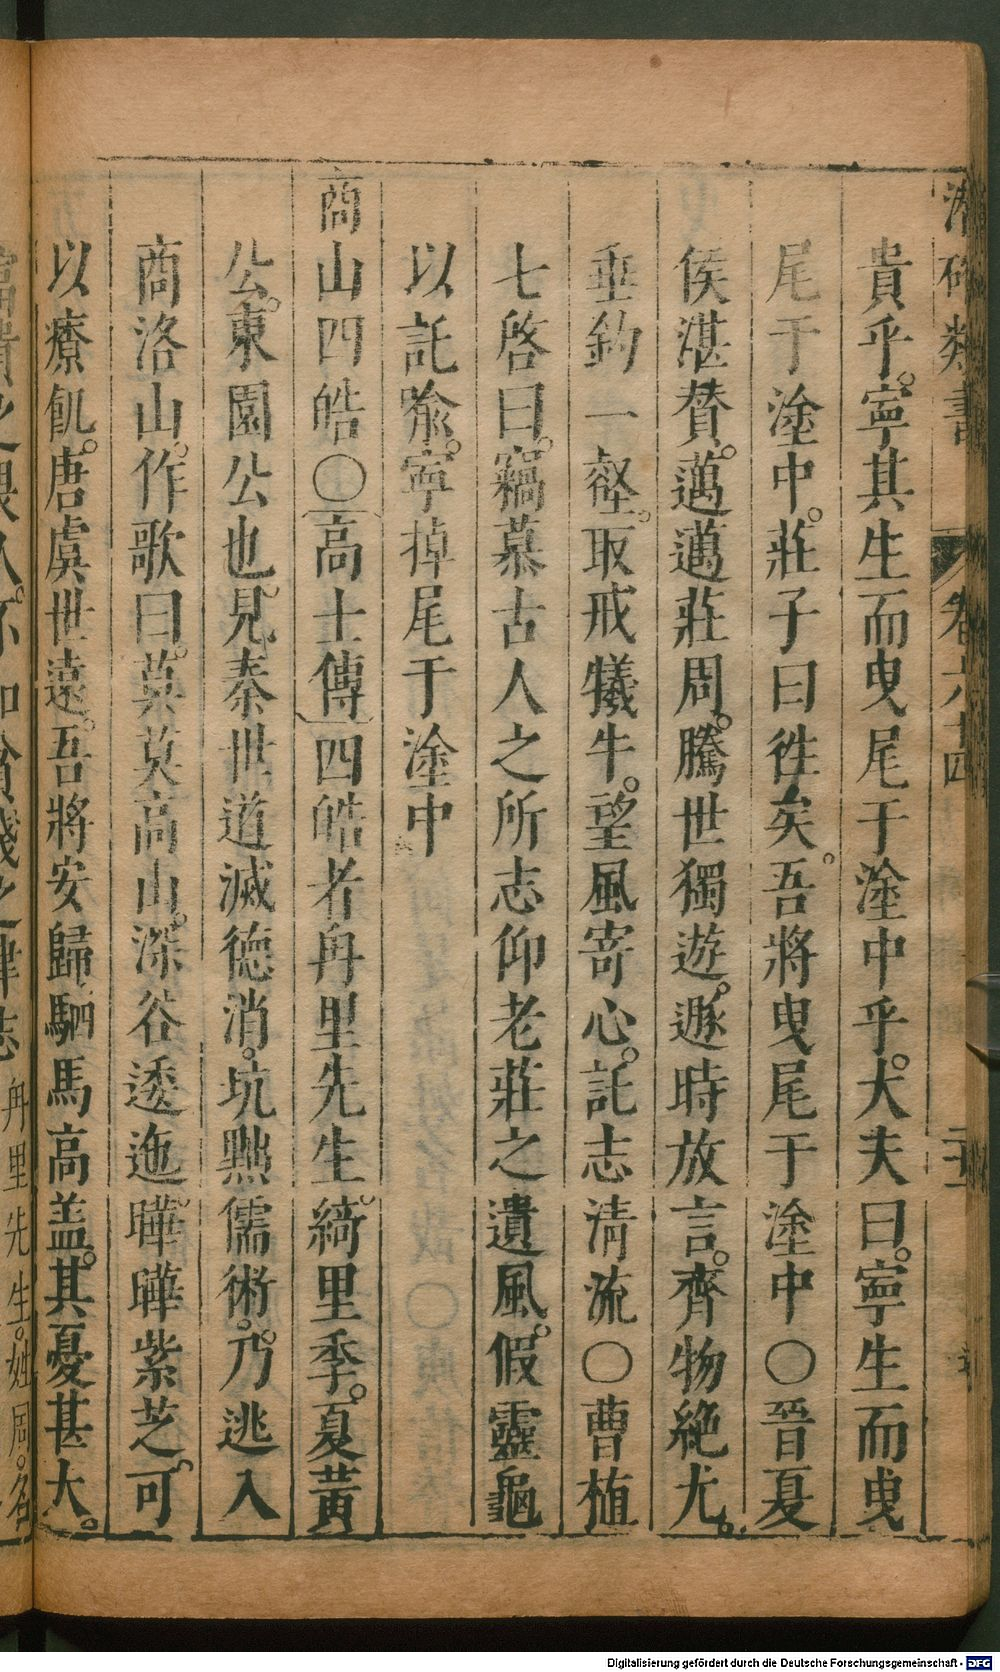 潛確類書 卷六十四 二十二
貴乎。寧其生而曳尾于塗中乎。大夫曰。寧生而曳
尾于塗中。莊子曰徃矣。吾將曳尾于塗中〇晉夏
侯湛贊。邁邁莊周。騰世獨遊。遯時放言。齊物絶尤。
垂釣一壑。取戒犧牛。望風寄心。託志清流〇曹植
七啓曰。竊慕古人之所志仰老莊之遺風。假靈龜
以託喩。寧掉尾于塗中
商山四皓〇高士傳四皓者甪里先生。綺里季。夏黃
公。東園公也。見秦世道滅德消。坑黜儒術。乃逃入
商洛山。作歌曰。莫莫高山。深谷逶迤。曄曄紫芝。可
以療飢。唐虞世遠。吾將安歸。駟馬高盖。其憂甚大。
富貴之畏人。不如貧賤之肆志 甪里先生。姓周。名
Digitalisierung gefördert durch die Deutsche Forschungsgemeinschaft - DFG